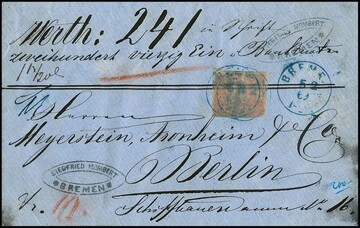 Werth: 241 in Schrift
zweihundert vierzig Ein
SIEGFRIED HUMBERT
BREMEN
BREMEN
5 2
Herren
Meyerstein, Fronheim & Co
Berlin
SIEGFRIED HUMBERT
* BREMEN *
Schiffbauerdamm No 16